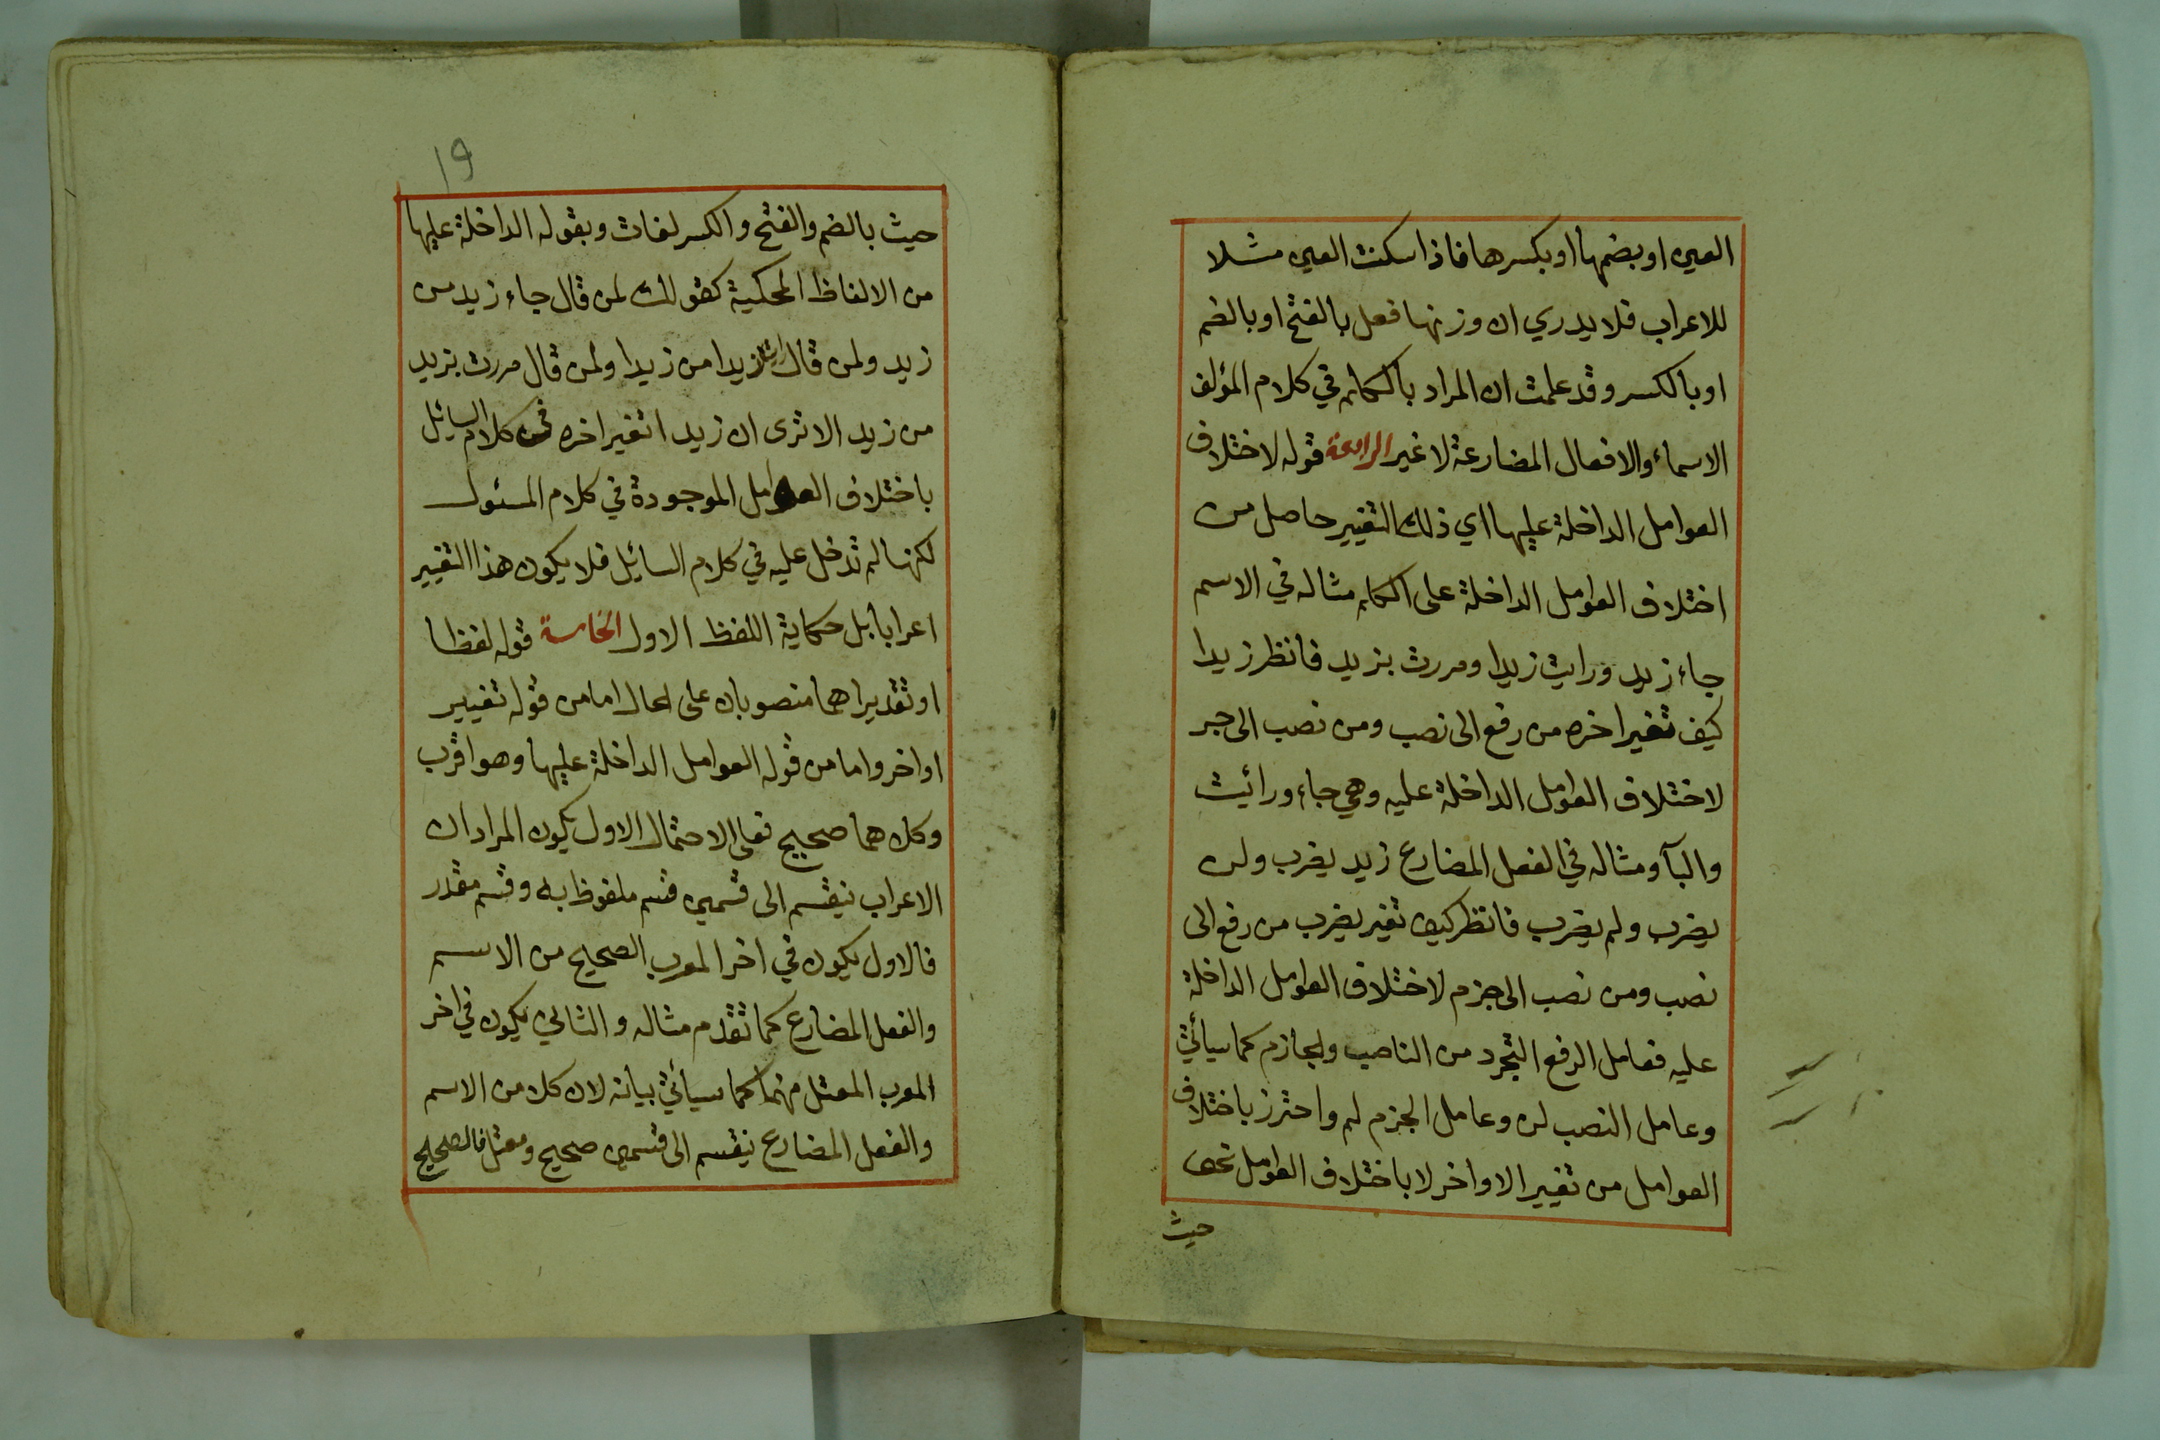 العين او بضمها او بكسرها فاذا سكنت العين مثلا
للاعراب فلا يدري ان وزنها فعل بالفتح او بالضم
او بالكسر وقد علمت ان المراد بالكلم في كلام المؤلف
الاسماء والافعال المضارعة لا غير الرابعة قوله لاختلاف
العوامل الداخلة عليها اي ذلك التغيير حاصل من
اختلاف العوامل الداخلة على الكلم مثاله في الاسم
جاء زيد ورايت زيدا ومررت بزيد فانظر زيدا
كيف تغير اخره من رفع الى نصب ومن نصب الى جر
لاختلاف العوامل الداخلة عليه وهي جاء ورائيت
والبآ ومثاله في الفعل المضارع زيد يضرب ولن
يضرب ولم يضرب فانظر كيف تغير يضرب من رفع الى
نصب ومن نصب الى جزم لاختلاف العوامل الداخلة
عليه فعامل الرفع التجرد من الناصب والجازم كما سيأتي
وعامل النصب لن وعامل الجزم لم واحترز باختلاف
العوامل من تغيير الاواخر لا باختلاف العوامل نحو
حيث
19
حيث بالضم والفتح والكسر لغات وبقوله الداخلة عليها
من الالفاظ المحكية كقولك لمن قال جاء زيد من
زيد ولمن قال رايت زيدا من زيدا ولمن قال مررت بزيد
من زيد الا ترى ان زيدا تغير اخره في كلام السايل
باختلاف العوامل الموجودة في كلام المسئول
لكنها لم تدخل عليه في كلام السايل فلا يكون هذا التغيير
اعرابا بل حكاية اللفظ الاول الخامسة قوله لفظا
او تقديرا هما منصوبان على الحال اما من قوله تغيير
اواخر واما من قوله العوامل الداخلة عليها وهو اقرب
وكلاهما صحيح فعلى الاحتمال الاول يكون المراد ان
الاعراب ينقسم الى قسمين قسم ملفوظ به وقسم مقدر
فالاول يكون في اخر المعرب الصحيح من الاسم
والفعل المضارع كما تقدم مثاله والثاني يكون في اخر
المعرب المعتل منهما كما سيأتي بيانه لان كلا من الاسم
والفعل المضارع ينقسم الى قسمين صحيح ومعتل فالصحيح